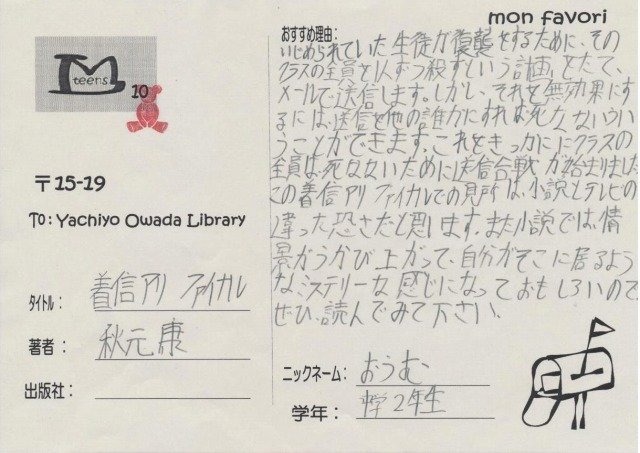 mon favori
M
teens
10
〒15-19
To: Yachiyo Owada Library
タイトル: 着信アリ ファイナル
著者: 秋元 康
出版社:
おすすめ理由:
いじめられていた生徒が復讐をするために、その
クラスの全員を1人ずつ殺すという計画をたて、
メールで送信します。しかし、それを無効果にす
るには、送信を他の誰かにすれば死なないとい
うことができます。これをきっかけにクラスの
全員は死なないために送信合戦が始まりました
この着信アリ ファイナルでの見所は、小説とテレビの
違った恐さだと思います。また小説では、情
景がうかび上がって、自分がそこに居るよう
な、ミステリーな感じになっておもしろいので
ぜひ、読んでみて下さい。
ニックネーム: おうむ
学年: 中学2年生